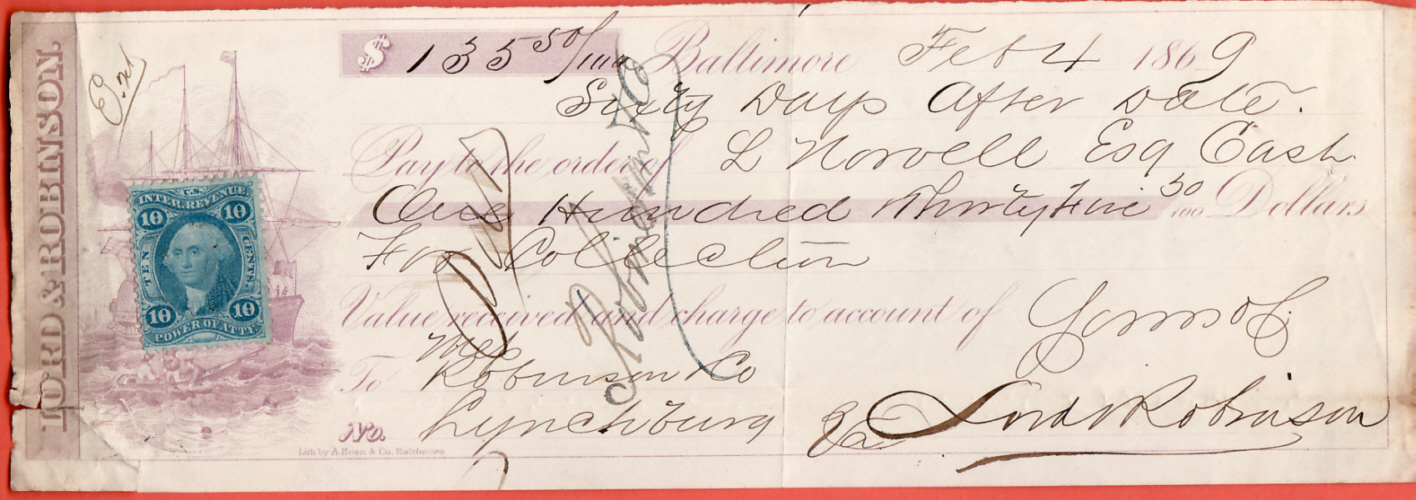 LORD & ROBINSON
$ 135 50/100 Baltimore Feb 4 1869
Sixty Days After Date.
Pay to the order of L Norvell Esq Cash
One Hundred Thirty Five 50/100 Dollars
For Collection
Value received and charge to account of
To Messrs Robinson Co
Lynchburg Va
Lord & Robinson
No.
Lith by A. Hoen & Co. Baltimore
U.S.
INTER. REVENUE
10 10
TEN CENTS
10 10
POWER OF ATT'Y
Robinson & Co